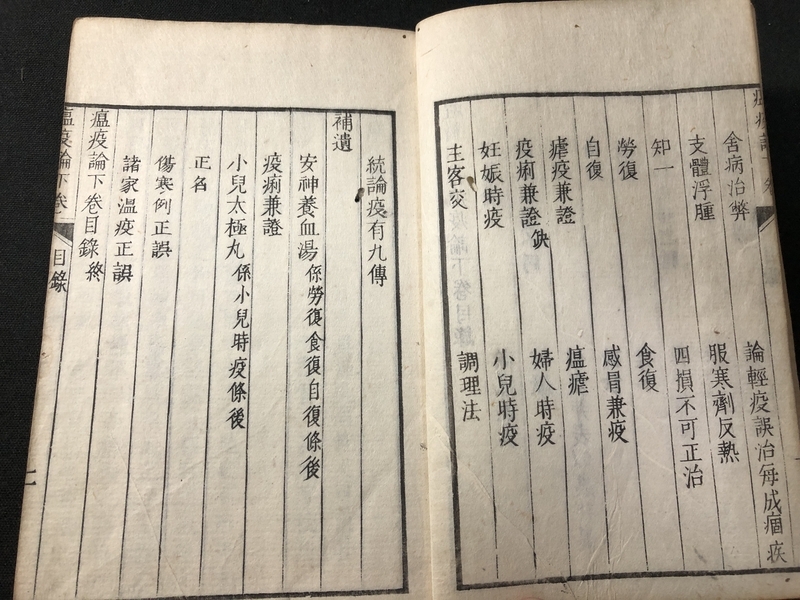 舍病治弊　論輕疫誤治每成痼疾
支體浮腫　服寒劑反熱
知一　四損不可正治
勞復　食復
自復　感冒兼疫
瘧疫兼證　瘟瘧
疫痢兼證缺　婦人時疫
妊娠時疫　小兒時疫
主客交　調理法
統論疫有九傳
補遺
安神養血湯係勞復食復自復條後
疫痢兼證
小兒太極丸係小兒時疫條後
正名
傷寒例正誤
諸家溫疫正誤
瘟疫論下卷目錄終
瘟疫論下卷　目錄